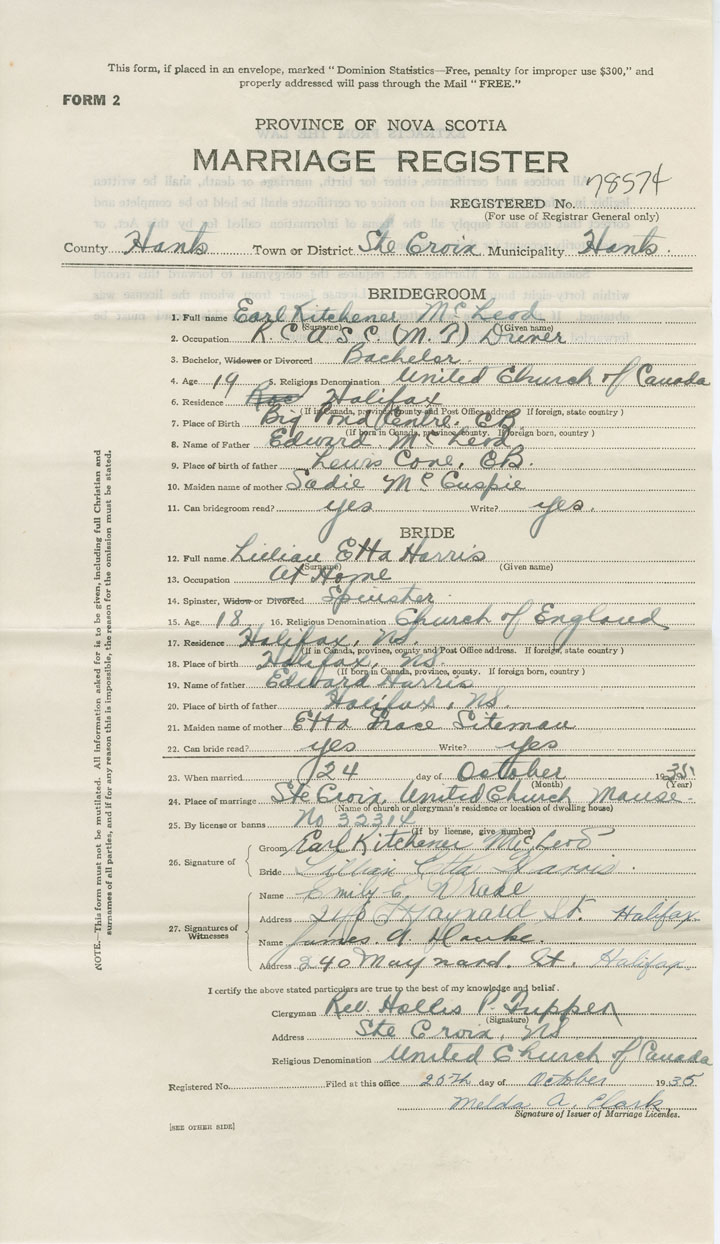 This form, if placed in an envelope, marked "Dominion Statistics—Free, penalty for improper use $300," and
properly addressed will pass through the Mail "FREE."
FORM 2
PROVINCE OF NOVA SCOTIA
MARRIAGE REGISTER
REGISTERED No. 78574
(For use of Registrar General only)
County Hants Town or District Ste Croix Municipality Hants.
BRIDEGROOM
1. Full name Earl Kitchener McLeod
(Surname) (Given name)
2. Occupation R.C.A.S.C. (M.T) Driver
3. Bachelor, Widower or Divorced Bachelor
4. Age 19 5. Religious Denomination United Church of Canada
6. Residence Halifax
(If in Canada, province, county and Post Office address. If foreign, state country)
7. Place of Birth Big Pond Centre, C.B.
(If born in Canada, province, county. If foreign born, country)
8. Name of Father Edward McLeod
9. Place of birth of father Lewis Cove, C.B.
10. Maiden name of mother Sadie McCuspie
11. Can bridegroom read? yes Write? yes.
BRIDE
12. Full name Lillian Etta Harris
(Surname) (Given name)
13. Occupation At Home
14. Spinster, Widow or Divorced Spinster
15. Age 18 16. Religious Denomination Church of England
17. Residence Halifax, NS.
(If in Canada, province, county and Post Office address. If foreign, state country)
18. Place of birth Halifax, NS.
(If born in Canada, province, county. If foreign born, country)
19. Name of father Edward Harris
20. Place of birth of father Halifax, NS.
21. Maiden name of mother Etta Grace Siteman
22. Can bride read? yes Write? yes
23. When married 24 day of October 1935
(Month) (Year)
24. Place of marriage Ste Croix, United Church Manse.
(Name of church or clergyman's residence or location of dwelling house)
25. By license or banns No 32314
(If by license, give number)
26. Signature of
Groom Earl Kitchener McLeod
Bride Lillian Etta Harris.
27. Signatures of Witnesses
Name Emily E.
Address 240 Maynard St. Halifax
Name James A.
Address 240 Maynard. St. Halifax
I certify the above stated particulars are true to the best of my knowledge and belief.
Clergyman Rev. Hollis P. Tupper
(Signature)
Address Ste Croix, NS
Religious Denomination United Church of Canada
Registered No. Filed at this office 25th day of October 1935
Melda A. Clark
Signature of Issuer of Marriage Licenses.
[SEE OTHER SIDE]
NOTE.—This form must not be mutilated. All information asked for is to be given, including full Christian and
surnames of all parties, and if for any reason this is impossible, the reason for the omission must be stated.